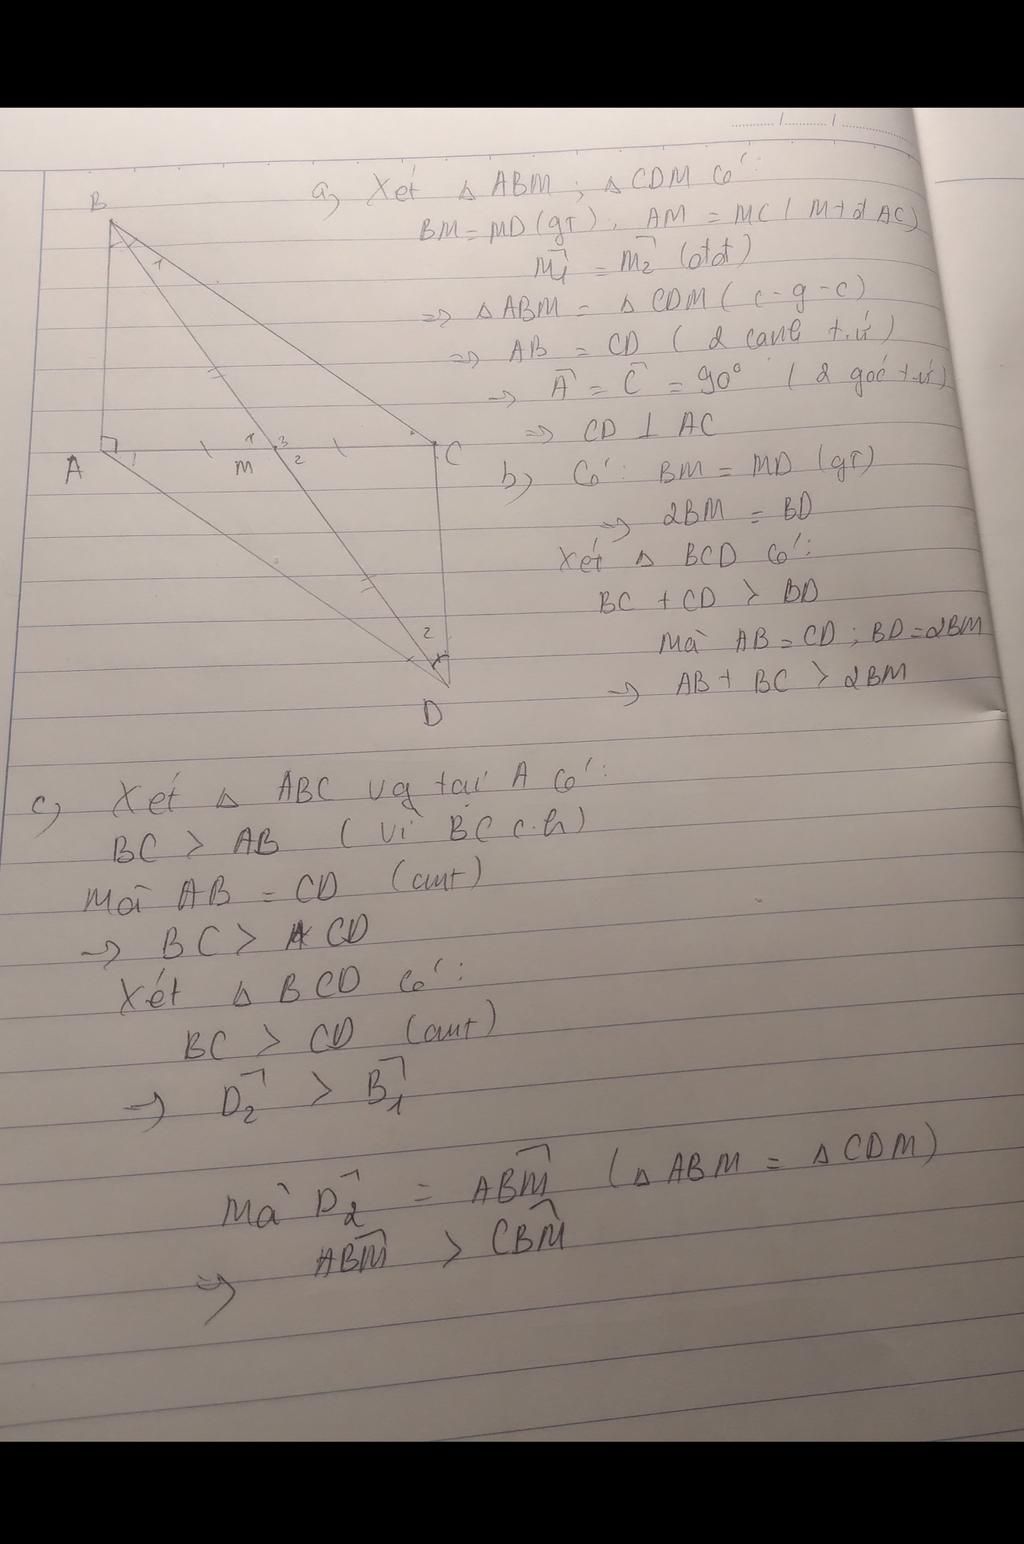 a) Xét Δ ABM ; Δ CDM có:
BM = MD (gt), AM = MC ( M tđ AC)
M̂1 = M̂2 (đđ)
=> Δ ABM = Δ CDM ( c - g - c)
=> AB = CD ( 2 cạnh t.ứ )
=> Â = Ĉ = 90° ( 2 góc t.ứ )
=> CD ⊥ AC
b) Có: BM = MD (gt)
=> 2BM = BD
Xét Δ BCD có:
BC + CD > BD
Mà AB = CD ; BD = 2BM
=> AB + BC > 2BM
B
1
A
1
M
1 3
2
C
2
D
c) Xét Δ ABC vg tại A có:
BC > AB ( vì BC c.h)
Mà AB = CD (cmt)
=> BC > CD
Xét Δ BCD có:
BC > CD (cmt)
=> D̂2 > B̂1
Mà D̂2 = ABM̂ ( Δ ABM = Δ CDM )
=> ABM̂ > CBM̂